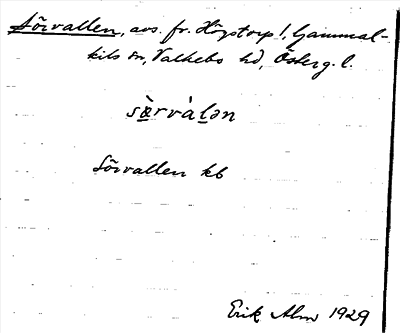 Sörvallen, avs. fr. Högstorp!, Gammal-
kils sn, Valkebo hd, Österg. l.
sœ̀rvàlən
Sörvallen kb
Erik Alm 1929